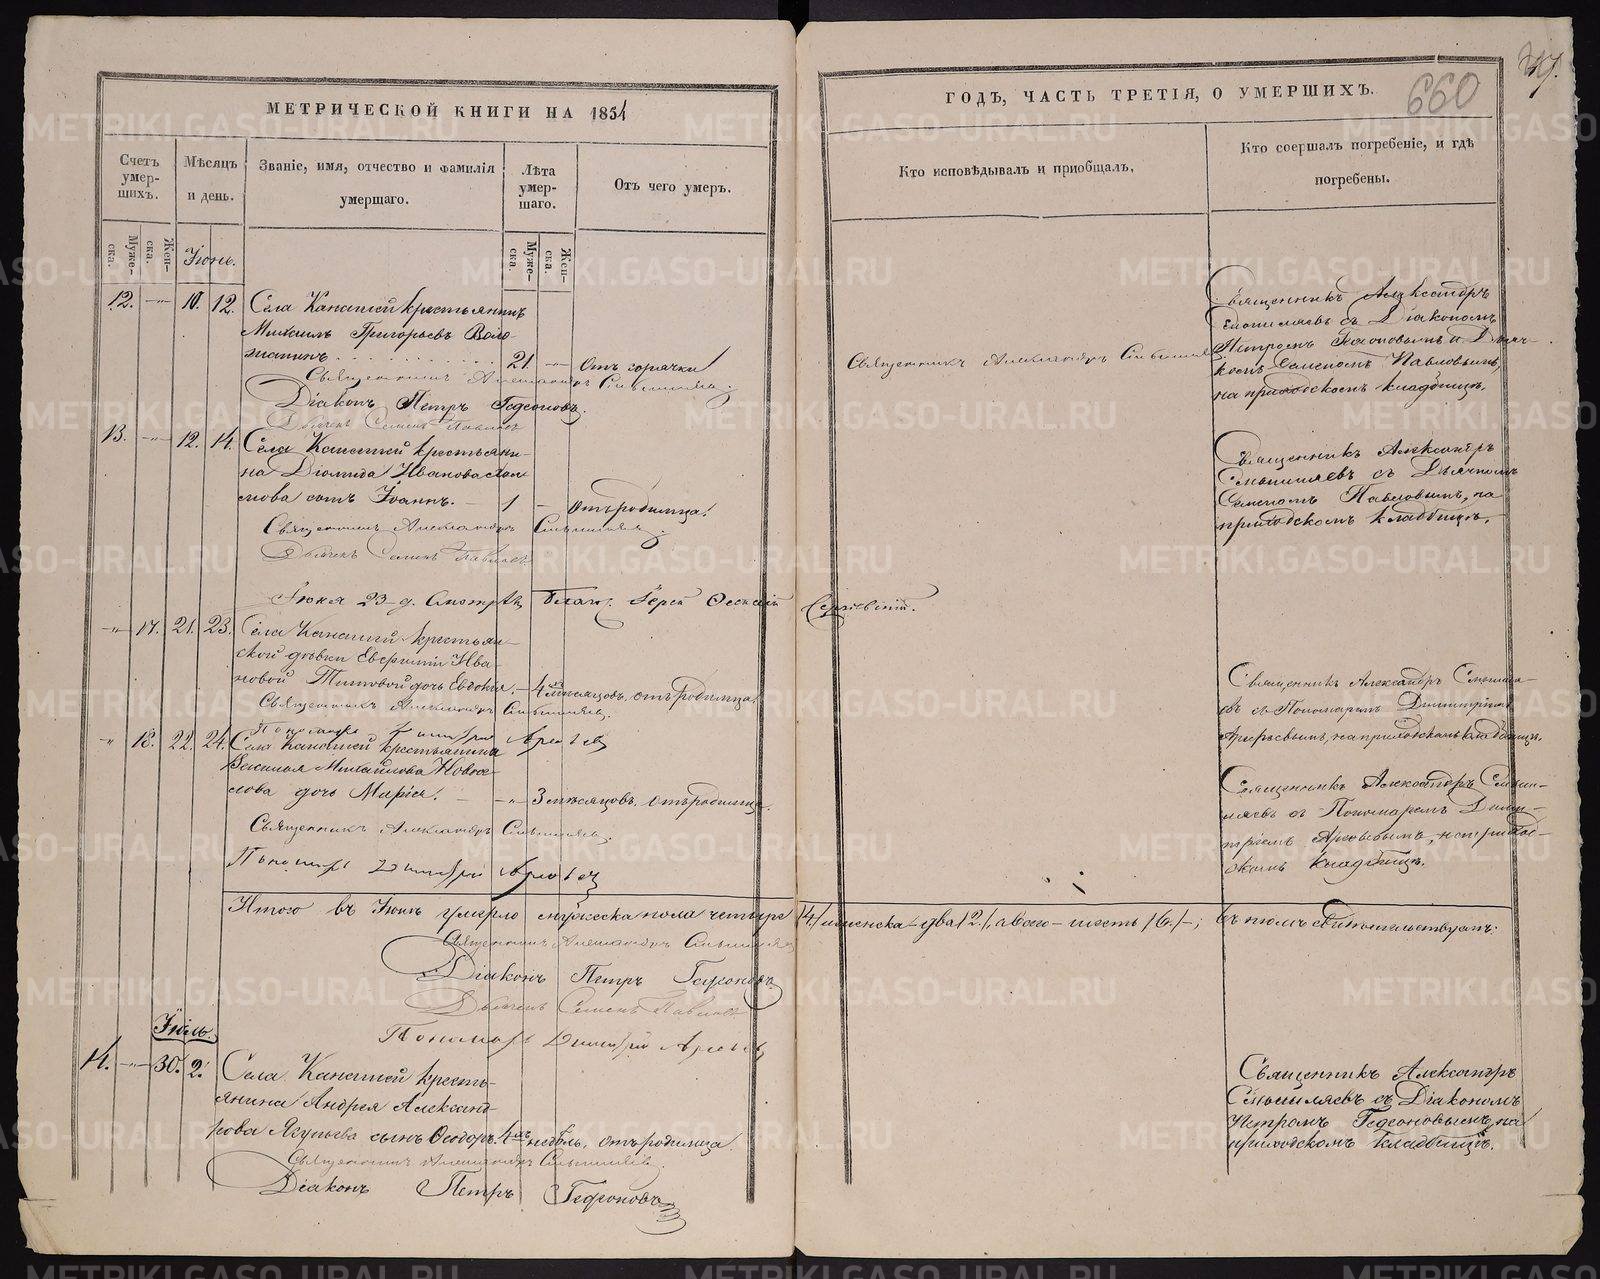 МЕТРИЧЕСКОЙ КНИГИ НА 1854
Счетъ умер-шихъ.
Мѣсяцъ и день.
Званіе, имя, отчество и фамилія умершаго.
Лѣта умер-шаго.
Отъ чего умеръ.
Муже-ска.
Жен-ска.
Муже-ска.
Жен-ска.
Іюнь.
12. 10. 12. Села Канашей крестьянинъ
Михаилъ Григорьевъ Воло-
жанинъ 21. Отъ горячки
Священникъ Александръ
Діаконъ Петръ Гедеоновъ.
Дьячекъ Семенъ Павловъ
13. 12. 14. Села Канашей крестьяни-
на Діомида Иванова
сынъ Іоаннъ. 1 Отъ родимца.
Священникъ Александръ
Дьячекъ Семенъ Павловъ
Іюня 23 д.
17. 21. 23. Села Канашей крестьян-
ской дѣвки Евгеніи Ива-
новой Титовой дочь Евдокія. 4 мѣсяцовъ, отъ родимца.
Священникъ Александръ
Пономарь Димитрій Арефьевъ
18. 22. 24. Села Канашей крестьянина
Василия Михайлова Новосе-
лова дочь Марія. 3 мѣсяцовъ, отъ родимца.
Священникъ Александръ
Пономарь Димитрій Арефьевъ
Итого въ Іюнѣ умерло мужеска пола четыре
Священникъ Александръ
Діаконъ Петръ Гедеоновъ
Дьячекъ Семенъ Павловъ
Пономарь Димитрій Арефьевъ
Іюль.
14. 30. 2. Села Канашей кресть-
янина Андрея Александ-
рова Ягупьева сынъ Ѳеодоръ 4 недѣль, отъ родимца.
Священникъ Александръ
Діаконъ Петръ Гедеоновъ
ГОДЪ, ЧАСТЬ ТРЕТІЯ, О УМЕРШИХЪ.
660
Кто исповѣдывалъ и пріобщалъ.
Кто соершалъ погребеніе, и гдѣ погребены.
Священникъ Александръ
Священникъ Александръ
съ Діакономъ
Петромъ Гедеоновымъ и Дьяч-
комъ Семеномъ Павловымъ,
на приходскомъ кладбищѣ.
Священникъ Александръ
съ Дьячкомъ
Семеномъ Павловымъ, на
приходскомъ кладбищѣ.
Священникъ Александръ
съ Пономаремъ Димитріемъ
Арефьевымъ, на приходскомъ кладбищѣ.
Священникъ Александръ
съ Пономаремъ Дими-
тріемъ Арефьевымъ, на приход-
скомъ кладбищѣ.
/4/ женска – два /2/, а всего – шесть /6/ –; въ томъ свидѣтельствуемъ:
Священникъ Александръ
съ Діакономъ
Петромъ Гедеоновымъ, на
приходскомъ кладбищѣ.
METRIKI.GASO-URAL.RU